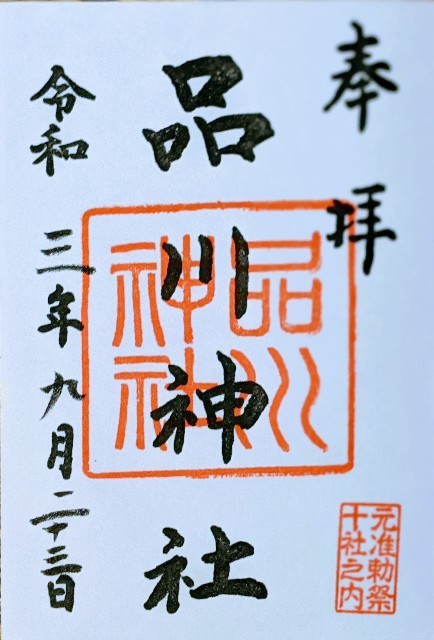 奉拝
品川神社
品川神社
令和三年九月二十三日
元准勅祭
十社之内